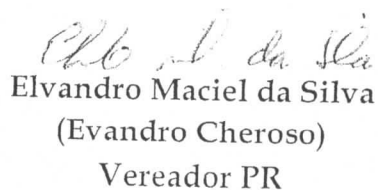 da Silva
Elvandro Maciel da Silva
(Evandro Cheroso)
Vereador PR